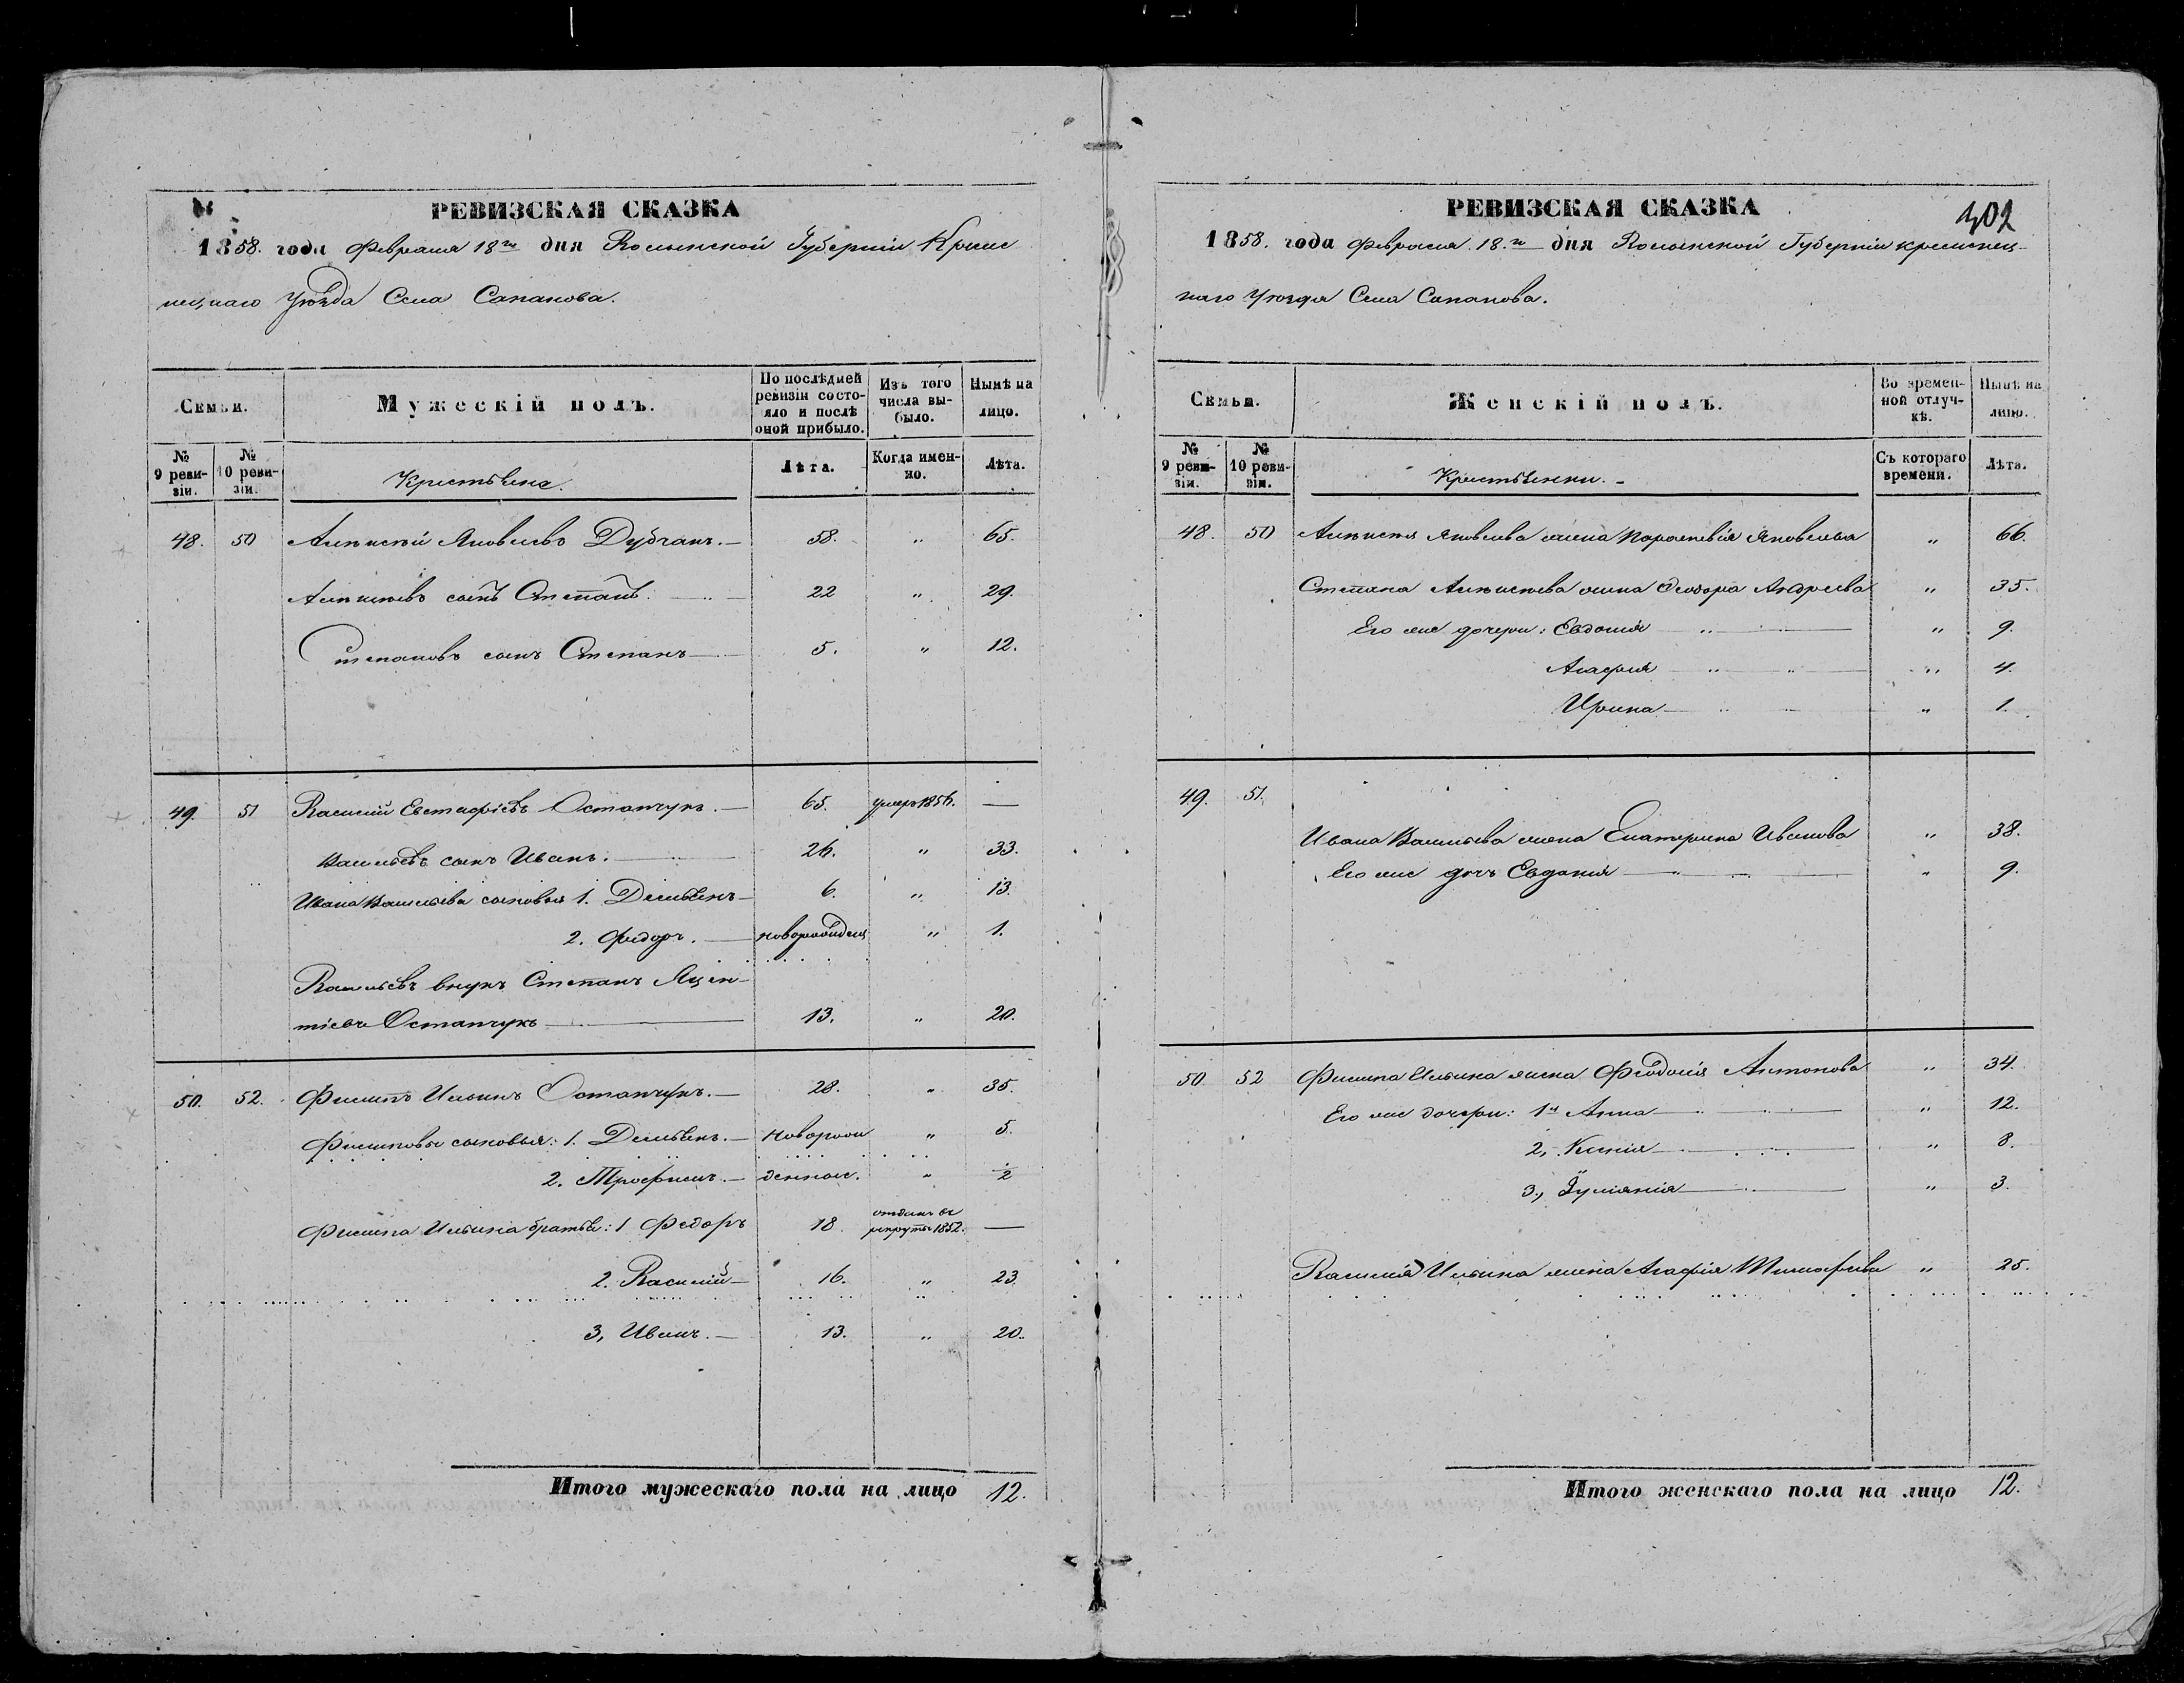 РЕВИЗСКАЯ СКАЗКА
1858. года Февраля 18го дня Волынской Губерніи Креме
нецкаго Уѣзда Села Сапанова.
Семьи.
Мужескій полъ.
По послѣдней ревизіи состояло и послѣ оной прибыло.
Изъ того числа выбыло.
Нынѣ на лицо.
№ 9 ревизіи.
№ 10 ревизіи.
Крестьяне.
Лѣта.
Когда именно.
Лѣта.
48. 50 Алексѣй Яковлевъ Дубчакъ.— 58. " 65.
Алексѣевъ сынъ Степанъ. — 22 " 29.
Степановъ сынъ Степанъ — 5. " 12.
49. 51 Василій Евстафіевъ Остапчукъ.— 65. умеръ 1856. —
Васильевъ сынъ Иванъ. — 26. " 33.
Ивана Васильева сыновья 1. Демьянъ — 6. " 13.
2. Федоръ. — новорожденъ " 1.
Васильевъ внукъ Степанъ
Остапчукъ — 13. " 20.
50. 52. Филипъ Ильинъ Остапчукъ.— 28. " 35.
Филиповы сыновья: 1. Демьянъ.— новорож " 5.
2. Трофимъ.— денные. " 2
Филипа Ильина братья: 1 Федоръ 18. отданъ въ рекруты 1852. —
2. Василій — 16. " 23
3, Иванъ.— 13. " 20.
Итого мужескаго пола на лицо 12.
РЕВИЗСКАЯ СКАЗКА
402
1858. года Февраля 18.го дня Волынской Губерніи Кременец-
каго Уѣзда Села Сапанова.
Семьи.
Женскій полъ.
Во временной отлучкѣ.
Нынѣ на лицо.
№ 9 ревизіи.
№ 10 ревизіи.
Крестьянки.—
Съ котораго времени.
Лѣта.
48. 50 Алексѣя Яковлева жена Параскевія Яковлева " 66.
Степана Алексѣева жена Феодора Андреева " 35.
Его же дочери: Евдокія — " 9.
Агафія — " 4.
Ирина — " 1.
49. 51.
Ивана Васильева жена Екатерина Иванова " 38.
Его же дочь Евдокія — " 9.
50. 52 Филипа Ильина жена Феодосія Антонова " 34.
Его же дочери: 1я Анна — " 12.
2, Ксенія — " 8.
3., — " 3.
Василія Ильина жена Агафія Тимофеева " 25.
Итого женскаго пола на лицо 12.